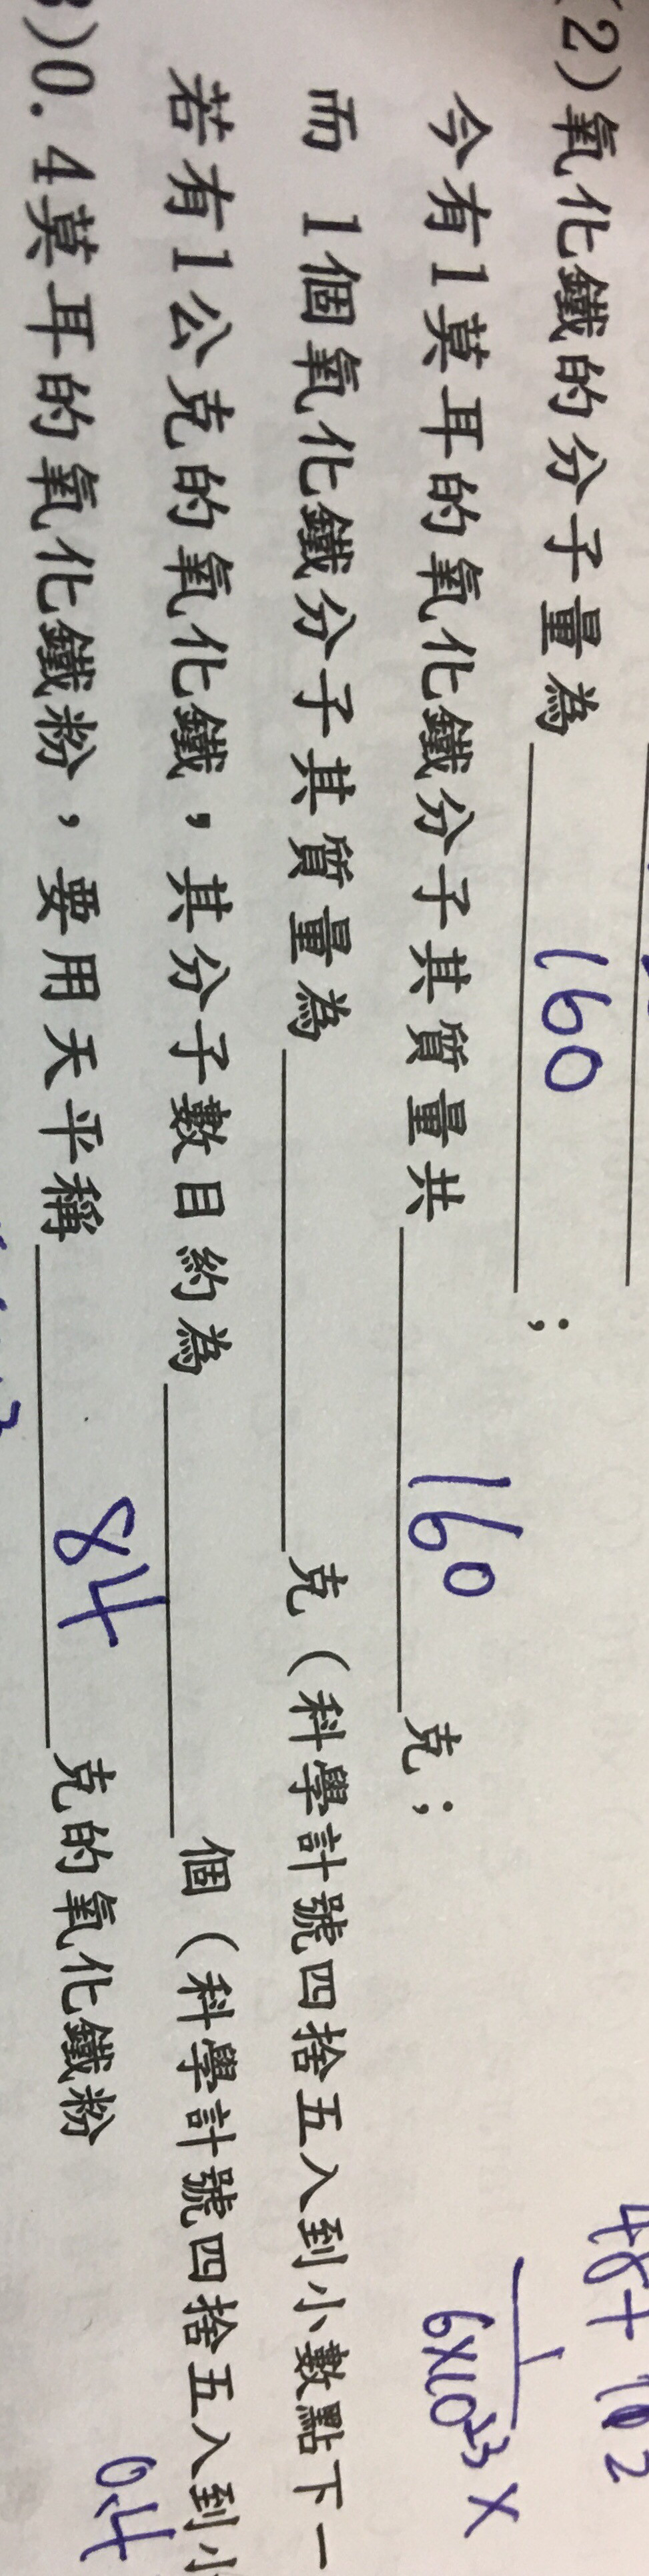 (2)氧化鐵的分子量為 160 ；
今有1莫耳的氧化鐵分子其質量共 160 克；
而 1個氧化鐵分子其質量為 克（科學計號四捨五入到小數點下一
若有1公克的氧化鐵，其分子數目約為 個（科學計號四捨五入到小
)0.4莫耳的氧化鐵粉，要用天平稱 84 克的氧化鐵粉
48+
1
6×10²³ ×
0.4